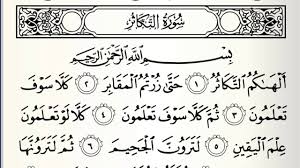 سُورَةُ التَّكَاثُرِ
بِسْمِ اللَّهِ الرَّحْمَٰنِ الرَّحِيمِ
أَلْهَىٰكُمُ التَّكَاثُرُ ١ حَتَّىٰ زُرْتُمُ الْمَقَابِرَ ٢ كَلَّا سَوْفَ
تَعْلَمُونَ ٣ ثُمَّ كَلَّا سَوْفَ تَعْلَمُونَ ٤ كَلَّا لَوْ تَعْلَمُونَ
عِلْمَ الْيَقِينِ ٥ لَتَرَوُنَّ الْجَحِيمَ ٦ ثُمَّ لَتَرَوُنَّهَا